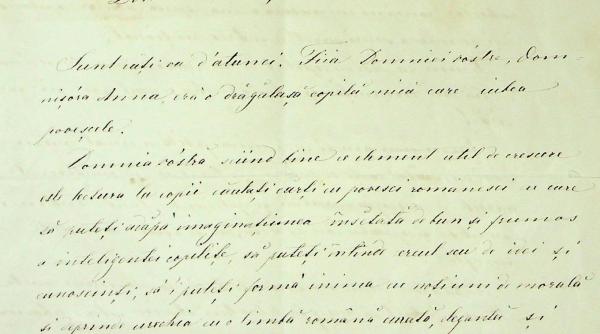 Sunt câți-va d'atunci. Fiia Domniei vóstre, dom-
nișóra Anna, eră o drăgălașă copilă mică care iubea
poveștele.
Domnia vóstră sciind bine ce element util de crescere
este lectura la copii căutați cărți cu povesci românesci cu care
să puteți adăpă imaginațiunea însetată de bun și frumos
a inteligentei copilițe, să puteți întinde cercul seu de idei și
cunoscinți, să puteți formă inima cu noțiuni de morală
și deprinde urechia cu o limbă română curată, elegantă și